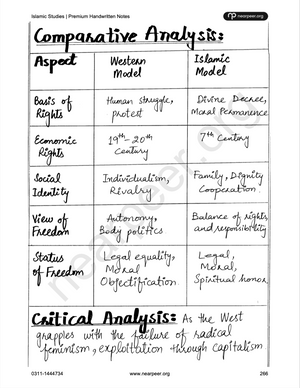 Islamic Studies | Premium Handwritten Notes
nearpeer.org
Comparative Analysis:
Aspect Western Model Islamic Model
Basis of Rights Human struggle, protest Divine Decree, Moral Permanence
Economic Rights 19th-20th Century 7th Century
Social Identity Individualism, Rivalry Family, Dignity Cooperation
View of Freedom Autonomy, Body politics Balance of rights, and responsibility
Status of Freedom Legal equality, Moral Objectification Legal, Moral, Spiritual honor
Critical Analysis: As the West
grapples with the failure of radical
feminism, exploitation through capitalism
0311-1444734 www.nearpeer.org 266
nearpeer.org